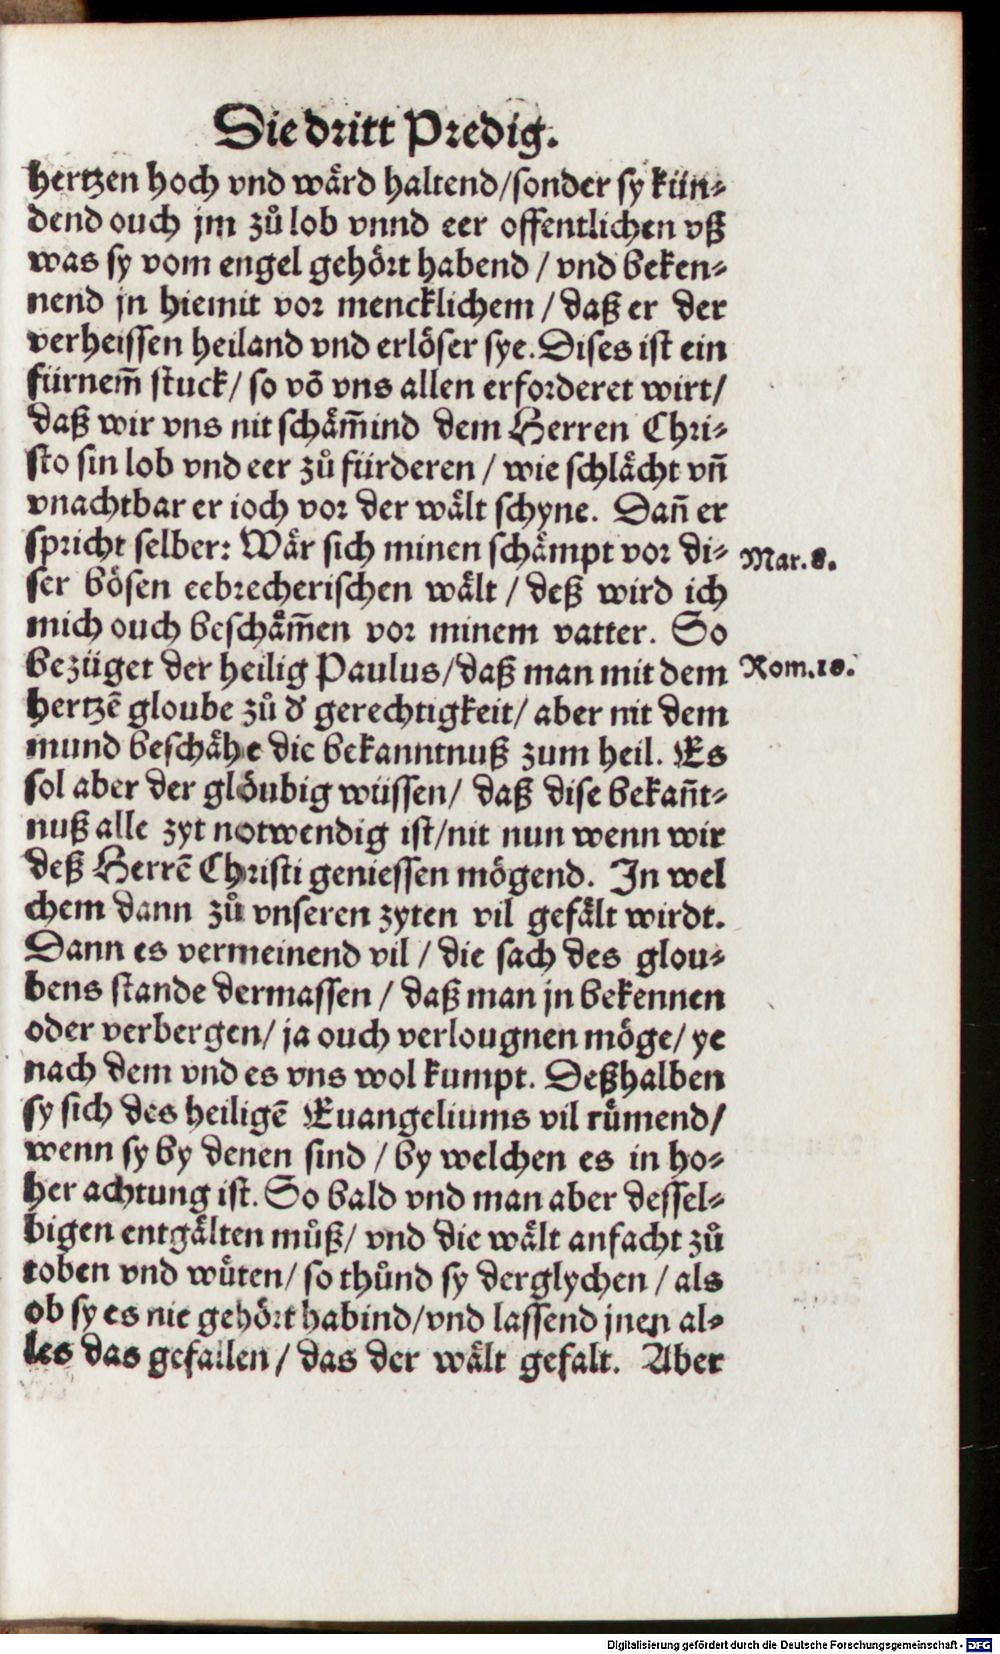 Die dritt Predig.
hertzen hoch vnd wärd haltend/sonder sy kün⸗
dend ouch jm zů lob vnnd eer offentlichen vß
was sy vom engel gehört habend / vnd beken⸗
nend jn hiemit vor mencklichem / daß er der
verheissen heiland vnd erlöser sye. Dises ist ein
fürnem̃ stuck/ so võ vns allen erforderet wirt/
daß wir vns nit schäm̃ind dem Herren Chri⸗
sto sin lob vnd eer zů fürderen / wie schlächt vñ
vnachtbar er ioch vor der wält schyne. Dañ er
spricht selber: Wär sich minen schämpt vor di⸗
ser bösen eebrecherischen wält / deß wird ich
mich ouch beschäm̃en vor minem vatter. So
bezüget der heilig Paulus/daß man mit dem
hertzẽ gloube zů d' gerechtigkeit/ aber mit dem
mund beschähe die bekanntnuß zum heil. Es
sol aber der glöubig wüssen/ daß dise bekañt⸗
nuß alle zyt notwendig ist/nit nun wenn wir
deß Herrẽ Christi geniessen mögend. In wel
chem dann zů vnseren zyten vil gefält wirdt.
Dann es vermeinend vil / die sach des glou⸗
bens stande dermassen / daß man jn bekennen
oder verbergen/ ja ouch verlougnen möge/ ye
nach dem vnd es vns wol kumpt. Deßhalben
sy sich des heiligẽ Euangeliums vil rümend/
wenn sy by denen sind / by welchen es in ho⸗
her achtung ist. So bald vnd man aber dessel⸗
bigen entgälten můß/ vnd die wält anfacht zů
toben vnd wüten/ so thůnd sy derglychen / als
ob sy es nie gehört habind/vnd lassend jnen al⸗
les das gefallen / das der wält gefalt. Aber
Mar.8.
Rom.10.
Digitalisierung gefördert durch die Deutsche Forschungsgemeinschaft - DFG